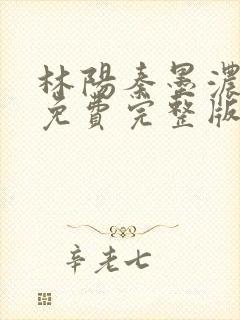 林陽秦墨濃
免費完整版
辛老七